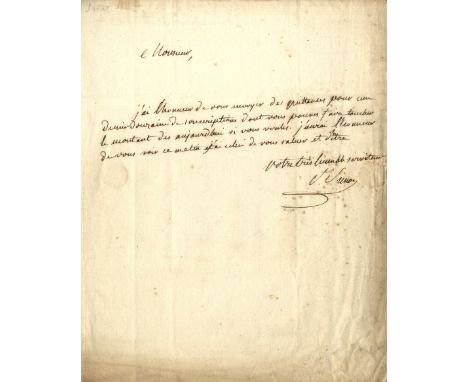 Monsieur,
j'ai l'honneur de vous envoyer des quittances pour une
demie douzaine de souscriptions dont vous pouvez faire toucher
le montant des aujourdhui si vous voulez. j'aurai l'honneur
de vous voir ce matin j'ai celui de vous saluer et d'être
votre très humble serviteur
St Simon